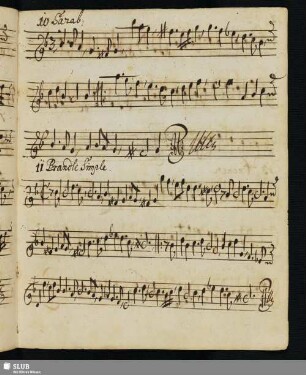 10 Sarab.
11 Brandle Simple
SLUB